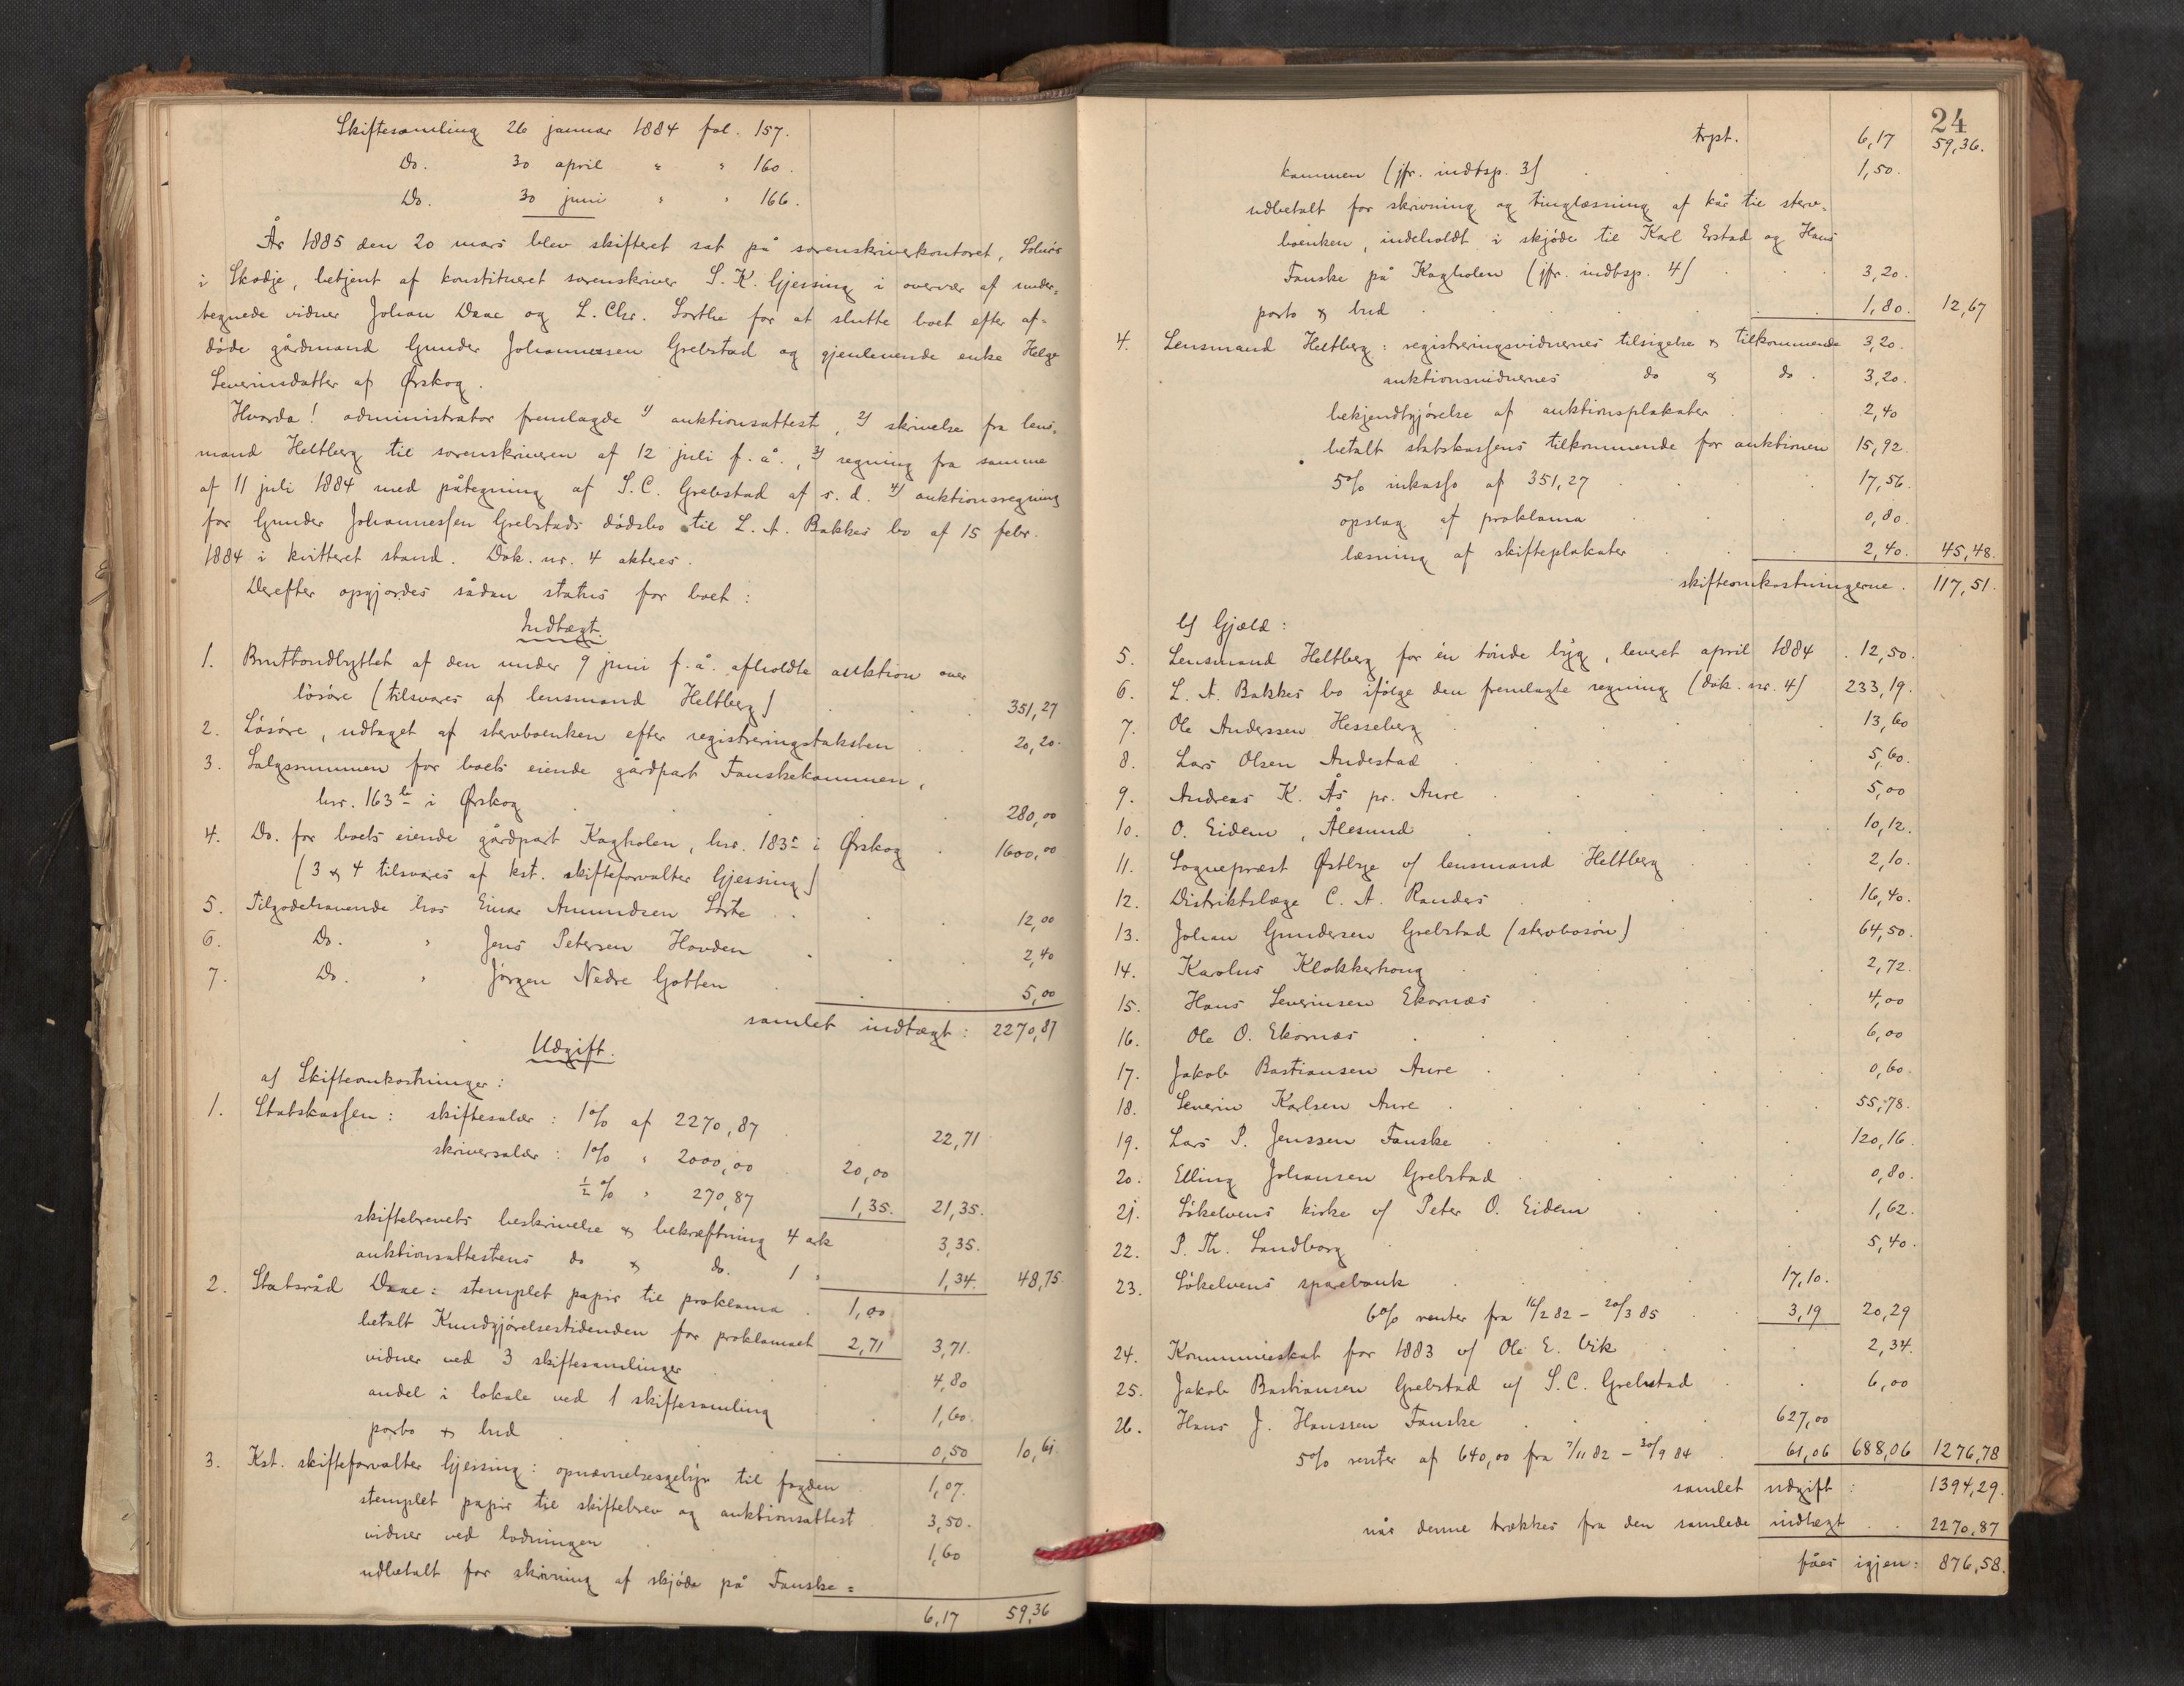 Skiftesamling 26 januar 1884 fol. 157.
Do. 30 april " " 160.
Do. 30 juni " " 166.
År 1885 den 20 mars blev skifteret sat på sorenskriverkontoret, Solnør
i Skodje, betjent af konstitueret sorenskriver S. K. Gjessing i overvær af under-
tegnede vidner Johan Daae og L. Chr. Sorthe for at slutte boet efter af-
døde gårdmand Gunder Johannessen Grebstad og gjenlevende enke Helge
Severinsdatter af Ørskog.
Hvorda! administrator fremlagde 1) auktionsattest, 2) skrivelse fra lens-
mand Heltberg til sorenskriveren af 12 juli f. å., 3) regning fra samme
af 11 juli 1884 med påtegning af S. C. Grebstad af s. d. 4) auktionsregning
for Gunder Johannessen Grebstads dødsbo til L. A. Bakkes bo af 15 febr.
1884 i kvitteret stand. Dok. nr. 4 akteres.
Derefter opgjordes sådan status for boet:
Indtægt.
1. Bruttoudbyttet af den under 9 juni f. å. afholdte auktion over
løsøre (tilsvares af lensmand Heltberg) 351,27
2. Løsøre, udtaget af stervboenken efter registreringstaksten 20,20.
3. Salgssummen for boets eiende gårdpart Fauskekammen,
lnr. 163 b i Ørskog 280,00
4. Do. for boets eiende gårdpart Kagholen, lnr. 183 c i Ørskog 1600,00
(3 & 4 tilsvares af kst. skifteforvalter Gjessing)
5. Tilgodehavende hos Einar Amundsen Sorte 12,00
6. Do. " Jens Petersen Hovden 2,40
7. Do. " Jørgen Nedre Gotten 5,00
samlet indtægt: 2270,87
Udgift.
a) Skifteomkostninger:
1. Statskassen: skiftesalær: 1% af 2270,87 22,71
skriversalær: 1% " 2000,00 20,00
½% " 270,87 1,35. 21,35.
skiftebrevets beskrivelse & bekræftning 4 ark 3,35.
auktionsattestens do & do. 1 " 1,34. 48,75.
2. Statsråd Daae: stemplet papir til proklama 1,00
betalt Kundgjørelsestidenden for proklamaet 2,71 3,71.
vidner ved 3 skiftesamlinger 4,80
andel i lokale ved 1 skiftesamling 1,60.
porto & bud 0,50 10,61.
3. Kst. skifteforvalter Gjessing: opnævnelsesgebyr til fogden 1,07.
stemplet papir til skiftebrev og auktionsattest 3,50.
vidner ved lodningen 1,60
udbetalt for skrivning af skjøde på Fauske=
6,17 59,36
24
trpt. 6,17 59,36.
kammen (jfr. indtsp. 3) 1,50.
udbetalt for skrivning og tinglæsning af kår til sterv-
boenken, indeholdt i skjøde til Karl Erstad og Hans
Fauske på Kagholen (jfr. indtsp. 4) 3,20.
porto & bud 1,80. 12,67
4. Lensmand Heltberg: registreringsvidnernes tilsigelse & tilkommende 3,20.
auktionsvidnernes do & do. 3,20.
bekjendtgjørelse af auktionsplakater 2,40
betalt statskassens tilkommende for auktionen 15,92.
5% inkasso af 351,27 17,56.
opslag af proklama 0,80.
læsning af skifteplakater 2,40. 45,48.
skifteomkostningerne. 117,51.
b) Gjæld:
5. Lensmand Heltberg for én tønde byg, leveret april 1884 12,50.
6. L. A. Bakkes bo ifølge den fremlagte regning (dok. nr. 4) 233,19.
7. Ole Anderssen Hesseberg 13,60
8. Lars Olsen Andestad 5,60.
9. Andreas K. Ås pr. Aure 5,00
10. O. Eidem, Ålesund 10,12.
11. Sognepræst Østbye v/ lensmand Heltberg 2,10.
12. Distriktslæge C. A. Randers 16,40.
13. Johan Gundersen Grebstad (stervbosøn) 64,50.
14. Karolus Klokkerhoug 2,72.
15. Hans Severinsen Ekornæs 4,00
16. Ole O. Ekornæs 6,00
17. Jakob Bastiansen Aure 0,60.
18. Severin Karlsen Aure 55,78.
19. Lars P. Jenssen Fauske 120,16.
20. Elling Johansen Grebstad 0,80.
21. Søkelvens kirke v/ Peter O. Eidem 1,62.
22. P. Th. Sandborg 5,40.
23. Søkelvens sparebank 17,10.
6% renter fra 14/2 82 – 20/3 85 3,19 20,29
24. Kommuneskat for 1883 v/ Ole E. Vik 2,34.
25. Jakob Bastiansen Grebstad v/ S. C. Grebstad 6,00
26. Hans J. Hanssen Fauske 627,00
5% renter af 640,00 fra 7/11 82 – 30/9 84 61,06 688,06 1276,78
samlet udgift: 1394,29.
når denne trækkes fra den samlede indtægt 2270,87
fåes igjen: 876,58.